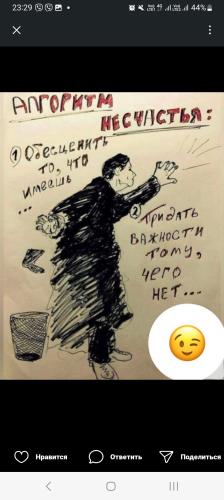 23:29
44%
АЛГОРИТМ
НЕСЧАСТЬЯ:
① Обесценить
то, что
имеешь
...
② Придать
важности
тому,
чего
нет...
Нравится
Ответить
Поделиться